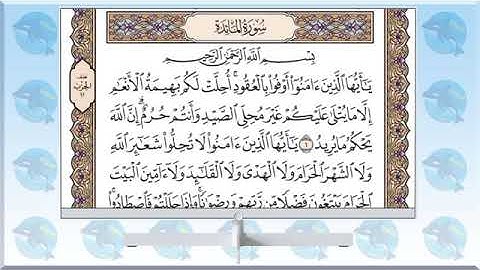 سُورَةُ المَائِدَةِ
بِسْمِ ٱللَّهِ ٱلرَّحْمَٰنِ ٱلرَّحِيمِ
يَٰٓأَيُّهَا ٱلَّذِينَ ءَامَنُوٓا۟ أَوْفُوا۟ بِٱلْعُقُودِ ۚ أُحِلَّتْ لَكُم بَهِيمَةُ ٱلْأَنْعَٰمِ
إِلَّا مَا يُتْلَىٰ عَلَيْكُمْ غَيْرَ مُحِلِّى ٱلصَّيْدِ وَأَنتُمْ حُرُمٌ ۗ إِنَّ ٱللَّهَ
يَحْكُمُ مَا يُرِيدُ ١ يَٰٓأَيُّهَا ٱلَّذِينَ ءَامَنُوا۟ لَا تُحِلُّوا۟ شَعَٰٓئِرَ ٱللَّهِ
وَلَا ٱلشَّهْرَ ٱلْحَرَامَ وَلَا ٱلْهَدْىَ وَلَا ٱلْقَلَٰٓئِدَ وَلَآ ءَآمِّينَ ٱلْبَيْتَ
ٱلْحَرَامَ يَبْتَغُونَ فَضْلًا مِّن رَّبِّهِمْ وَرِضْوَٰنًا ۚ وَإِذَا حَلَلْتُمْ فَٱصْطَادُوا۟ ۚ